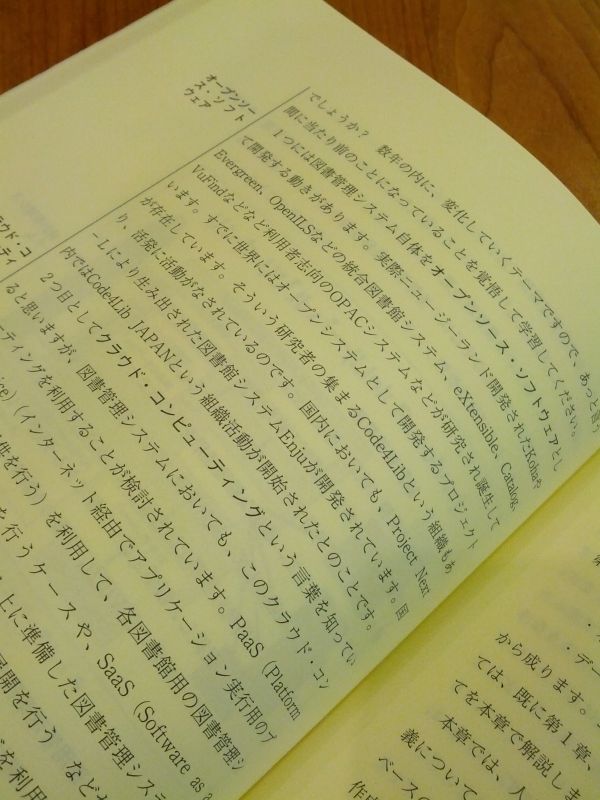 オープンソー
ス・ソフト
ウェア
でしょうか？　数年の内に、変化していくテーマですので、あっと言う
間に当たり前のことになっていることを覚悟して学習してください。
1つには図書管理システム自体をオープンソース・ソフトウェアとし
て開発する動きがあります。実際ニュージーランド開発されたKohaや
Evergreen、OpenILSなどの統合図書館システム、eXtensible、Catalog、
VuFindなどなど利用者志向のOPACシステムなどが研究され誕生して
います。すでに世界にはオープンシステムとして開発するプロジェクト
が存在しています。そういう研究者の集まるCode4Libという組織もあ
り、活発に活動がなされているのです。国内においても、Project Next
-Lにより生み出された図書館システムEnjuが開発されています。国
内ではCode4Lib JAPANという組織活動が開始されたとのことです。
ラウド・コ
ティ
2つ目としてクラウド・コンピューティングという言葉を知ってい
ると思いますが、図書管理システムにおいても、このクラウド・コン
ーティングを利用することが検討されています。PaaS（Platform
ice）（インターネット経由でアプリケーション実行用のプ
を行う）を利用して、各図書館用の図書管理シ
を行うケースや、SaaS（Software as a
上に準備した図書管理システ
展開を行う　など
を利用
・デー
から成ります。
ては、既に第1章、
てを本章で解説しま
本章では、人
義について
ベースの
作成